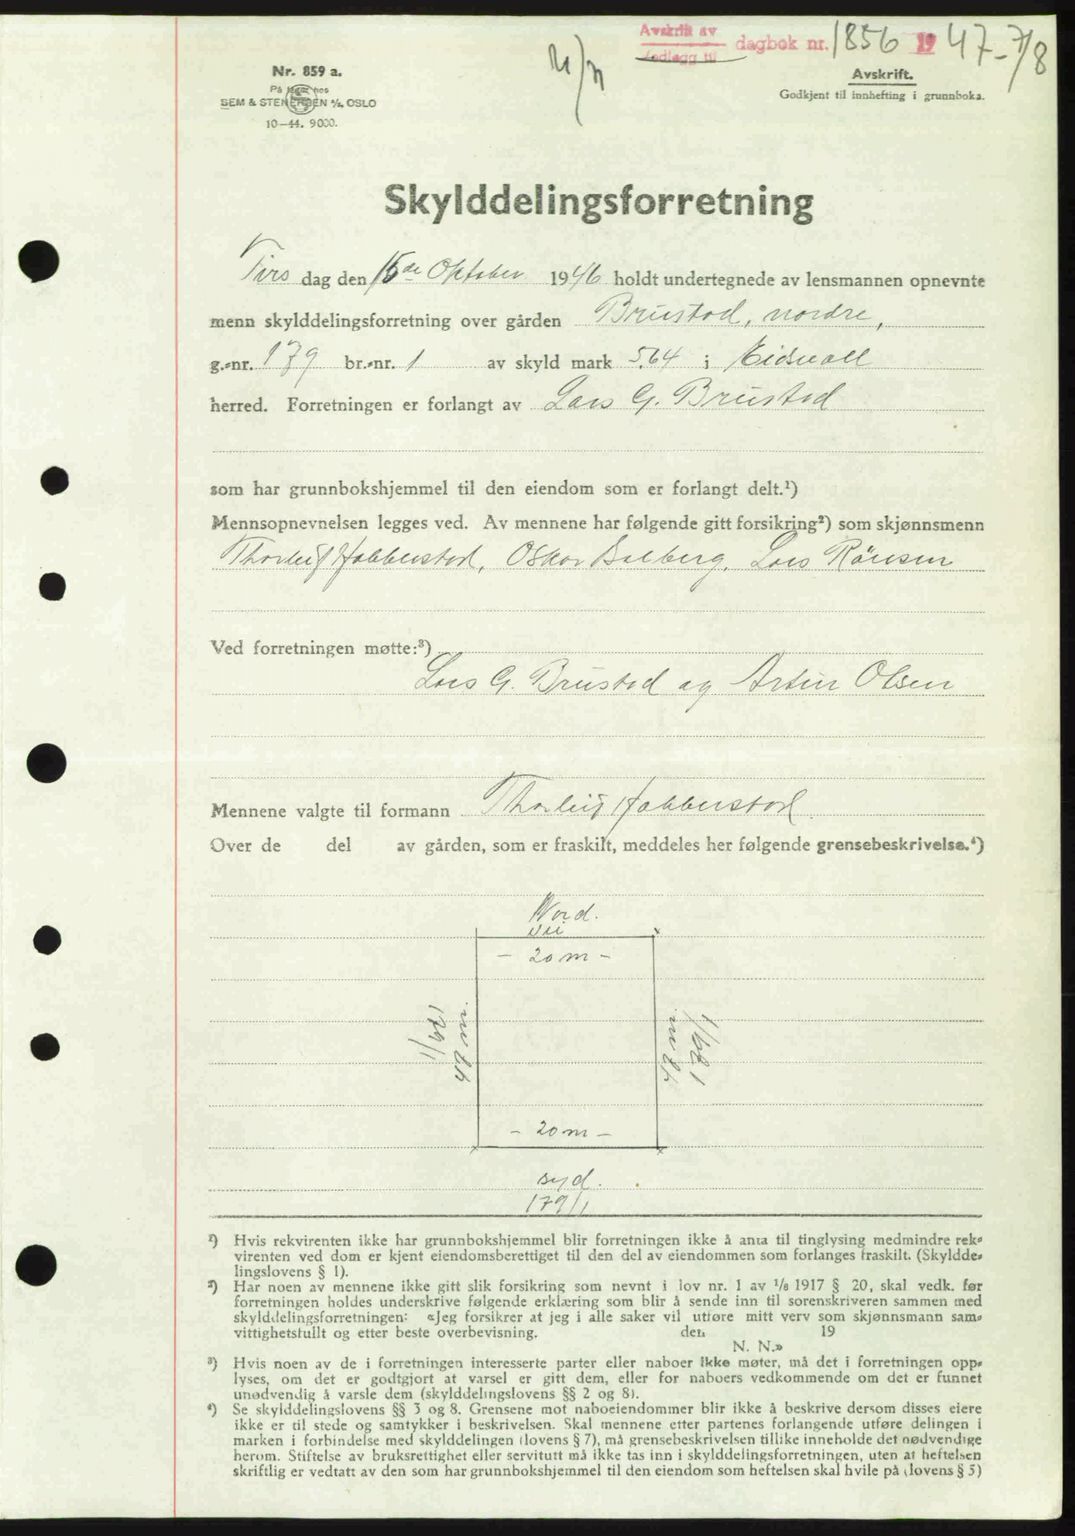 Avskrift av
Vedlegg til
dagbok nr. 1856 1947-7/8
Nr. 859 a.
På lager hos
SEM & STENERSEN A/S, OSLO
10-44. 9000.
Avskrift.
Godkjent til innhefting i grunnboka.
Skylddelingsforretning
Tirs dag den 15de Oktober 1946 holdt undertegnede av lensmannen opnevnte
menn skylddelingsforretning over gården Brustad, nordre,
g.-nr. 179 br.-nr. 1 av skyld mark 5.64 i Eidsvoll
herred. Forretningen er forlangt av Lars G. Brustad
som har grunnbokshjemmel til den eiendom som er forlangt delt.¹)
Mennsopnevnelsen legges ved. Av mennene har følgende gitt forsikring²) som skjønnsmenn
Thorleif Habberstad, Oskar Dalberg, Lars Rönsen
Ved forretningen møtte:³)
Lars G. Brustad og Artur Olsen
Mennene valgte til formann Thorleif Habberstad.
Over de del av gården, som er fraskilt, meddeles her følgende grensebeskrivelse.⁴)
Nord.
vei
- 20 m -
179/1
48 m.
48 m.
179/1
- 20 m -
syd.
179/1
¹) Hvis rekvirenten ikke har grunnbokshjemmel blir forretningen ikke å anta til tinglysing medmindre rek-
virenten ved dom er kjent eiendomsberettiget til den del av eiendommen som forlanges fraskilt. (Skyldde-
lingslovens § 1).
²) Har noen av mennene ikke gitt slik forsikring som nevnt i lov nr. 1 av 1/6 1917 § 20, skal vedk. før
forretningen holdes underskrive følgende erklæring som blir å sende inn til sorenskriveren sammen med
skylddelingsforretningen: «Jeg forsikrer at jeg i alle saker vil utføre mitt verv som skjønnsmann sam-
vittighetsfullt og etter beste overbevisning. den 19
N. N.»
³) Hvis noen av de i forretningen interesserte parter eller naboer ikke møter, må det i forretningen opp-
lyses, om det er godtgjort at varsel er gitt dem, eller for naboers vedkommende om det er funnet
unødvendig å varsle dem (skylddelingslovens §§ 2 og 8).
⁴) Se skylddelingslovens §§ 3 og 8. Grensene mot naboeiendommer blir ikke å beskrive dersom disses eiere
ikke er til stede og samtykker i beskrivelsen. Skal mennene etter partenes forlangende utføre delingen i
marken i forbindelse med skylddelingen (lovens § 7), må grensebeskrivelsen tillike inneholde det nødvendige
herom. Stiftelse av bruksrettighet eller servitutt må ikke tas inn i skylddelingsforretningen, uten at heftelsen
skriftlig er vedtatt av den som har grunnbokshjemmel til den eiendom som heftelsen skal hvile på (lovens § 5)